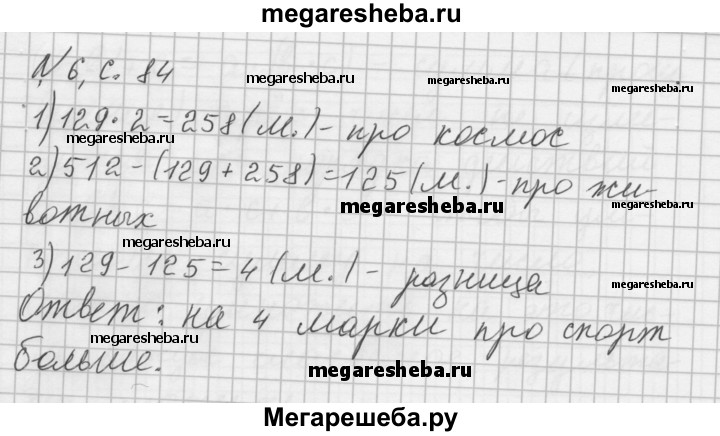 megaresheba.ru
№6, с. 84
megaresheba.ru
megaresheba.ru
1) 129·2=258 (м.) - про космос
megaresheba.ru
megaresheba.ru
2) 512-(129+258)=125 (м.) - про жи-
megaresheba.ru
вотных
megaresheba.ru
3) 129-125=4 (м.) - разница
megaresheba.ru
megaresheba.ru
Ответ: на 4 марки про спорт
megaresheba.ru
больше.
megaresheba.ru
megaresheba.ru
Мегарешеба.ру